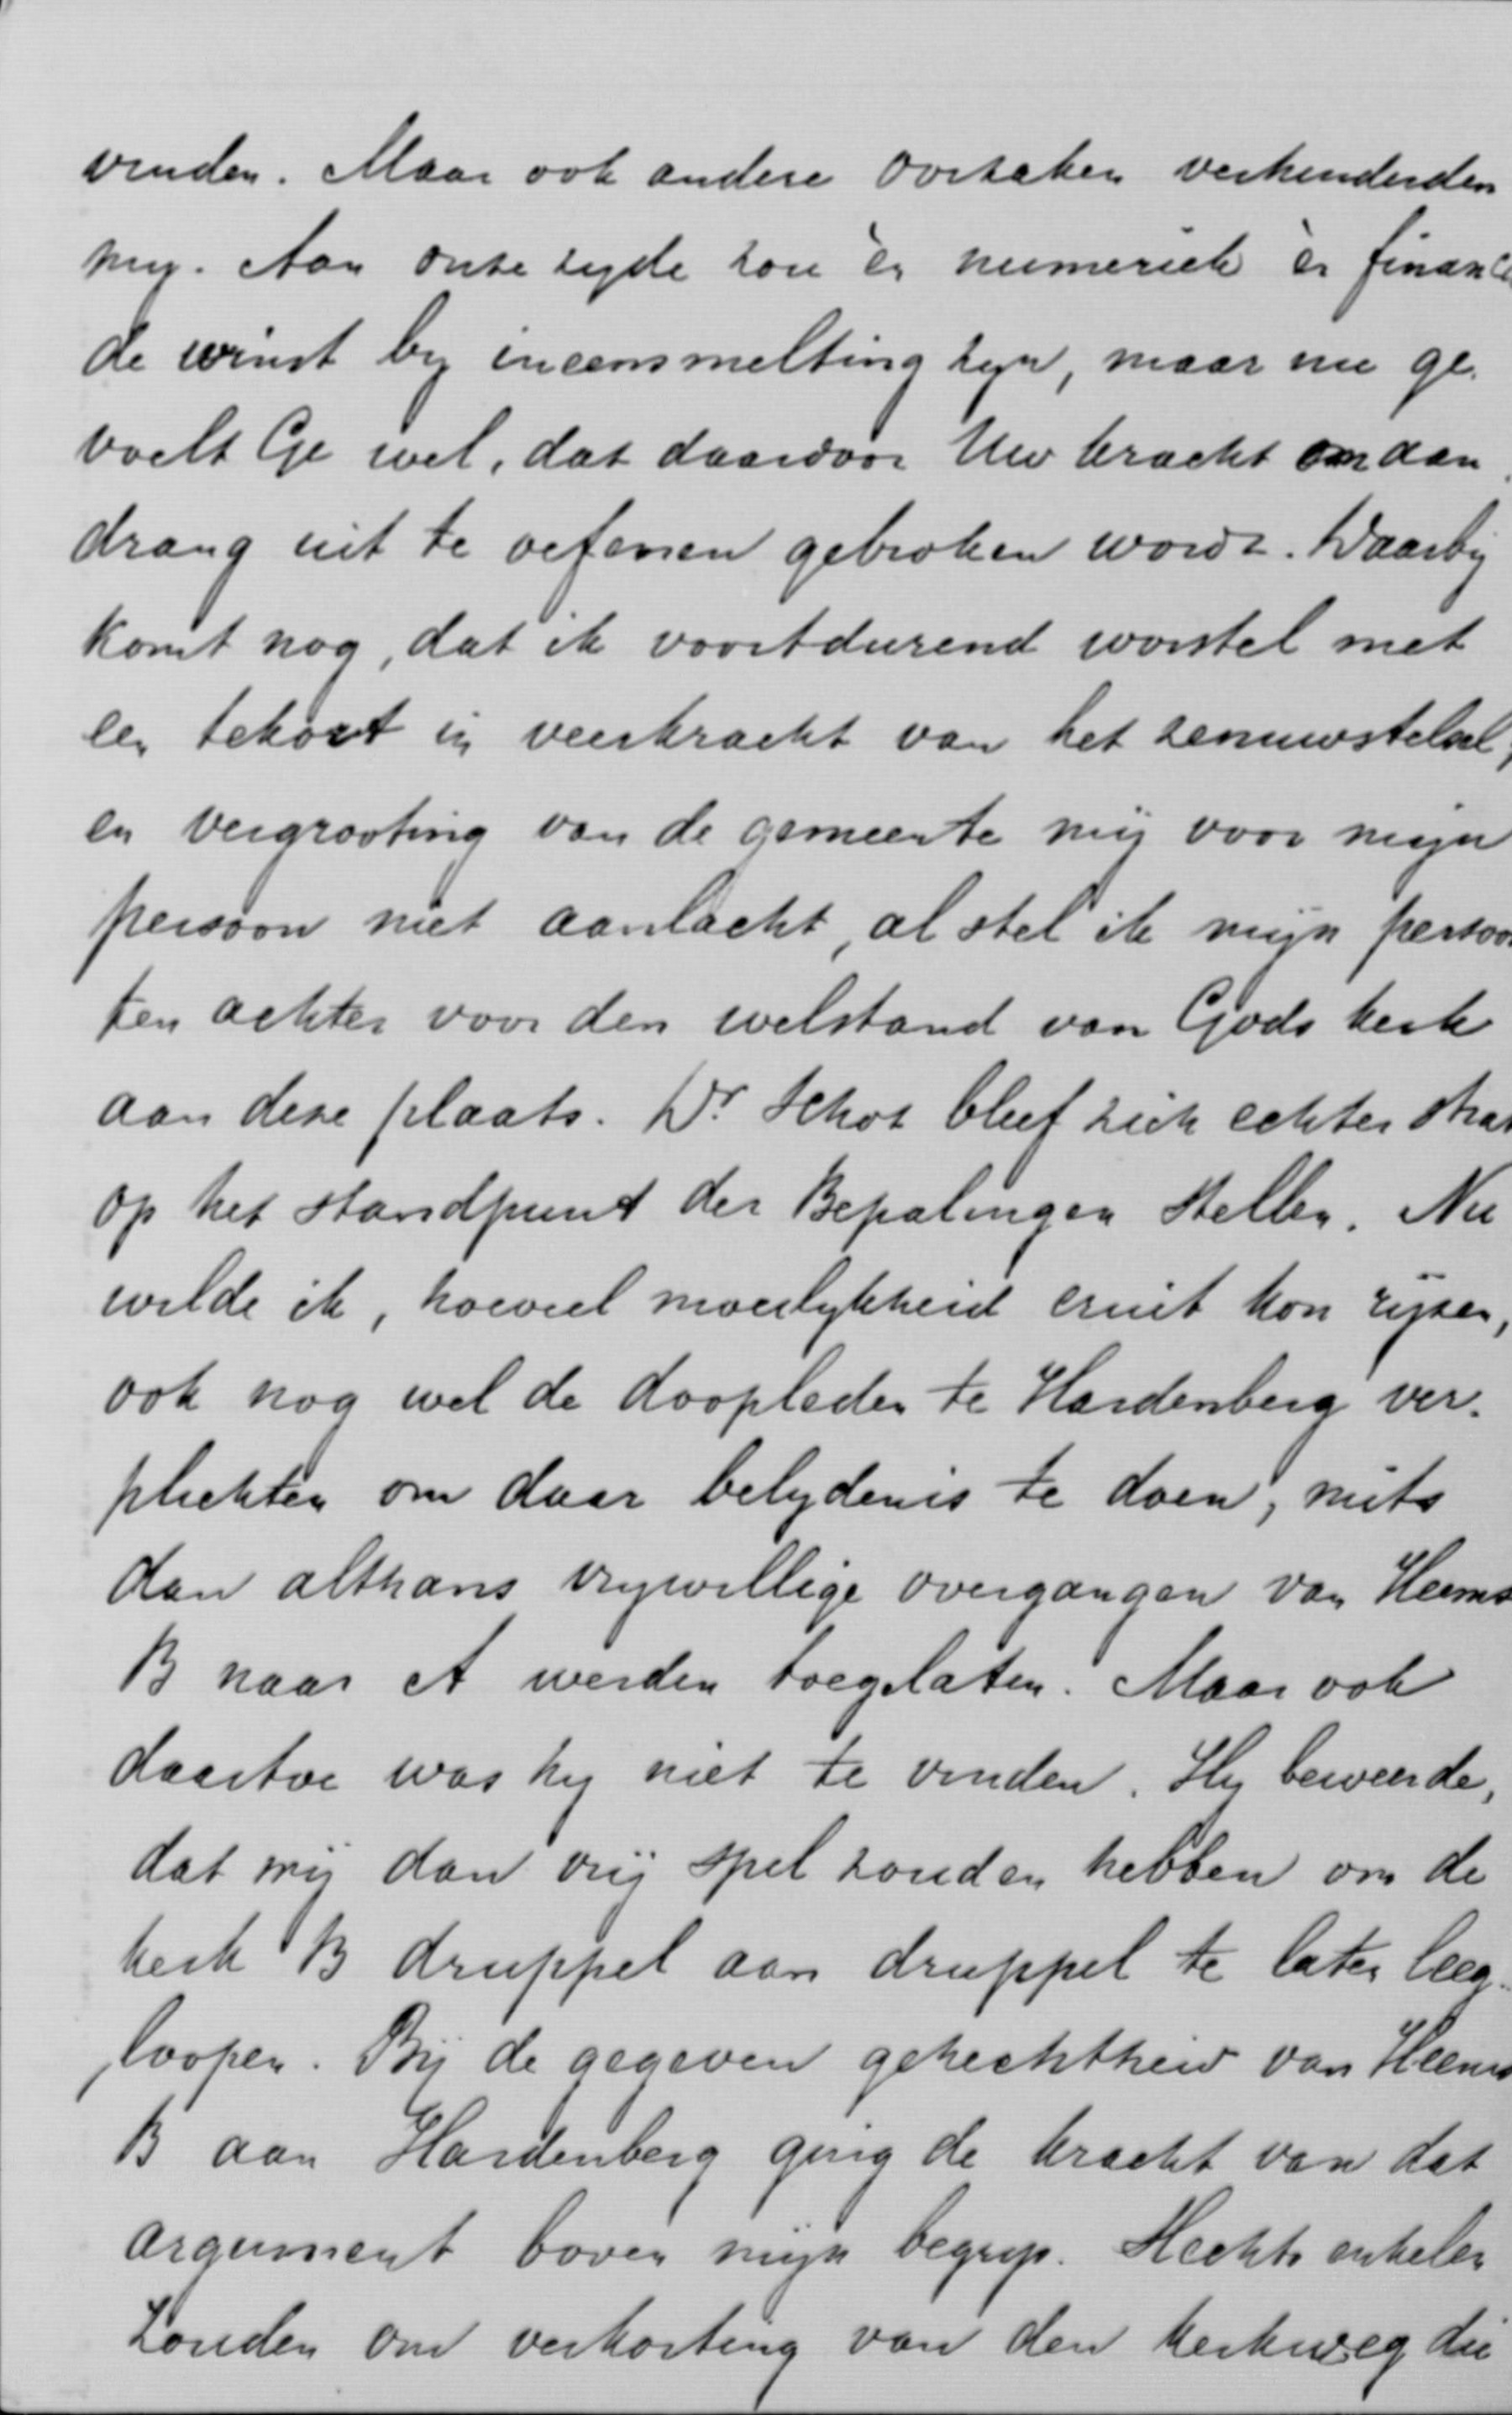 vinden. Maar ook andere oorzaken verhinderden
mij. Aan onze zyde zou èn numeriek èn financ
de winst by ineensmelting zyn, maar nu ge-
voelt Ge wel, dat daardoor Uw kracht om aan-
drang uit te oefenen gebroken wordt. Daarbij
komt nog, dat ik voortdurend worstel met
een tekort in veerkracht van het zenuwstelsel,
en vergrooting van de gemeente mij voor mijn
persoon niet aanlacht, al stel ik mijn persoo
ten achter voor den welstand van Gods kerk
aan deze plaats. Dr. Schot bleef zich echter stra
op het standpunt der Bepalingen stellen. Nu
wilde ik, hoeveel moeilykheid eruit kon rijzen,
ook nog wel de doopleden te Hardenberg ver-
plichten om daar belydenis te doen, mits
dan althans vrywillige overgangen van Heems
B naar A werden toegelaten. Maar ook
daartoe was hy niet te vinden. Hy beweerde,
dat wij dan vrij spel zouden hebben om de
kerk B druppel aan druppel te laten leeg-
loopen. Bij de gegeven gehechtheid van Heems
B aan Hardenberg ging de kracht van dat
argument boven mijn begrip. Slechts enkelen
zouden om verkorting van den kerkweg die